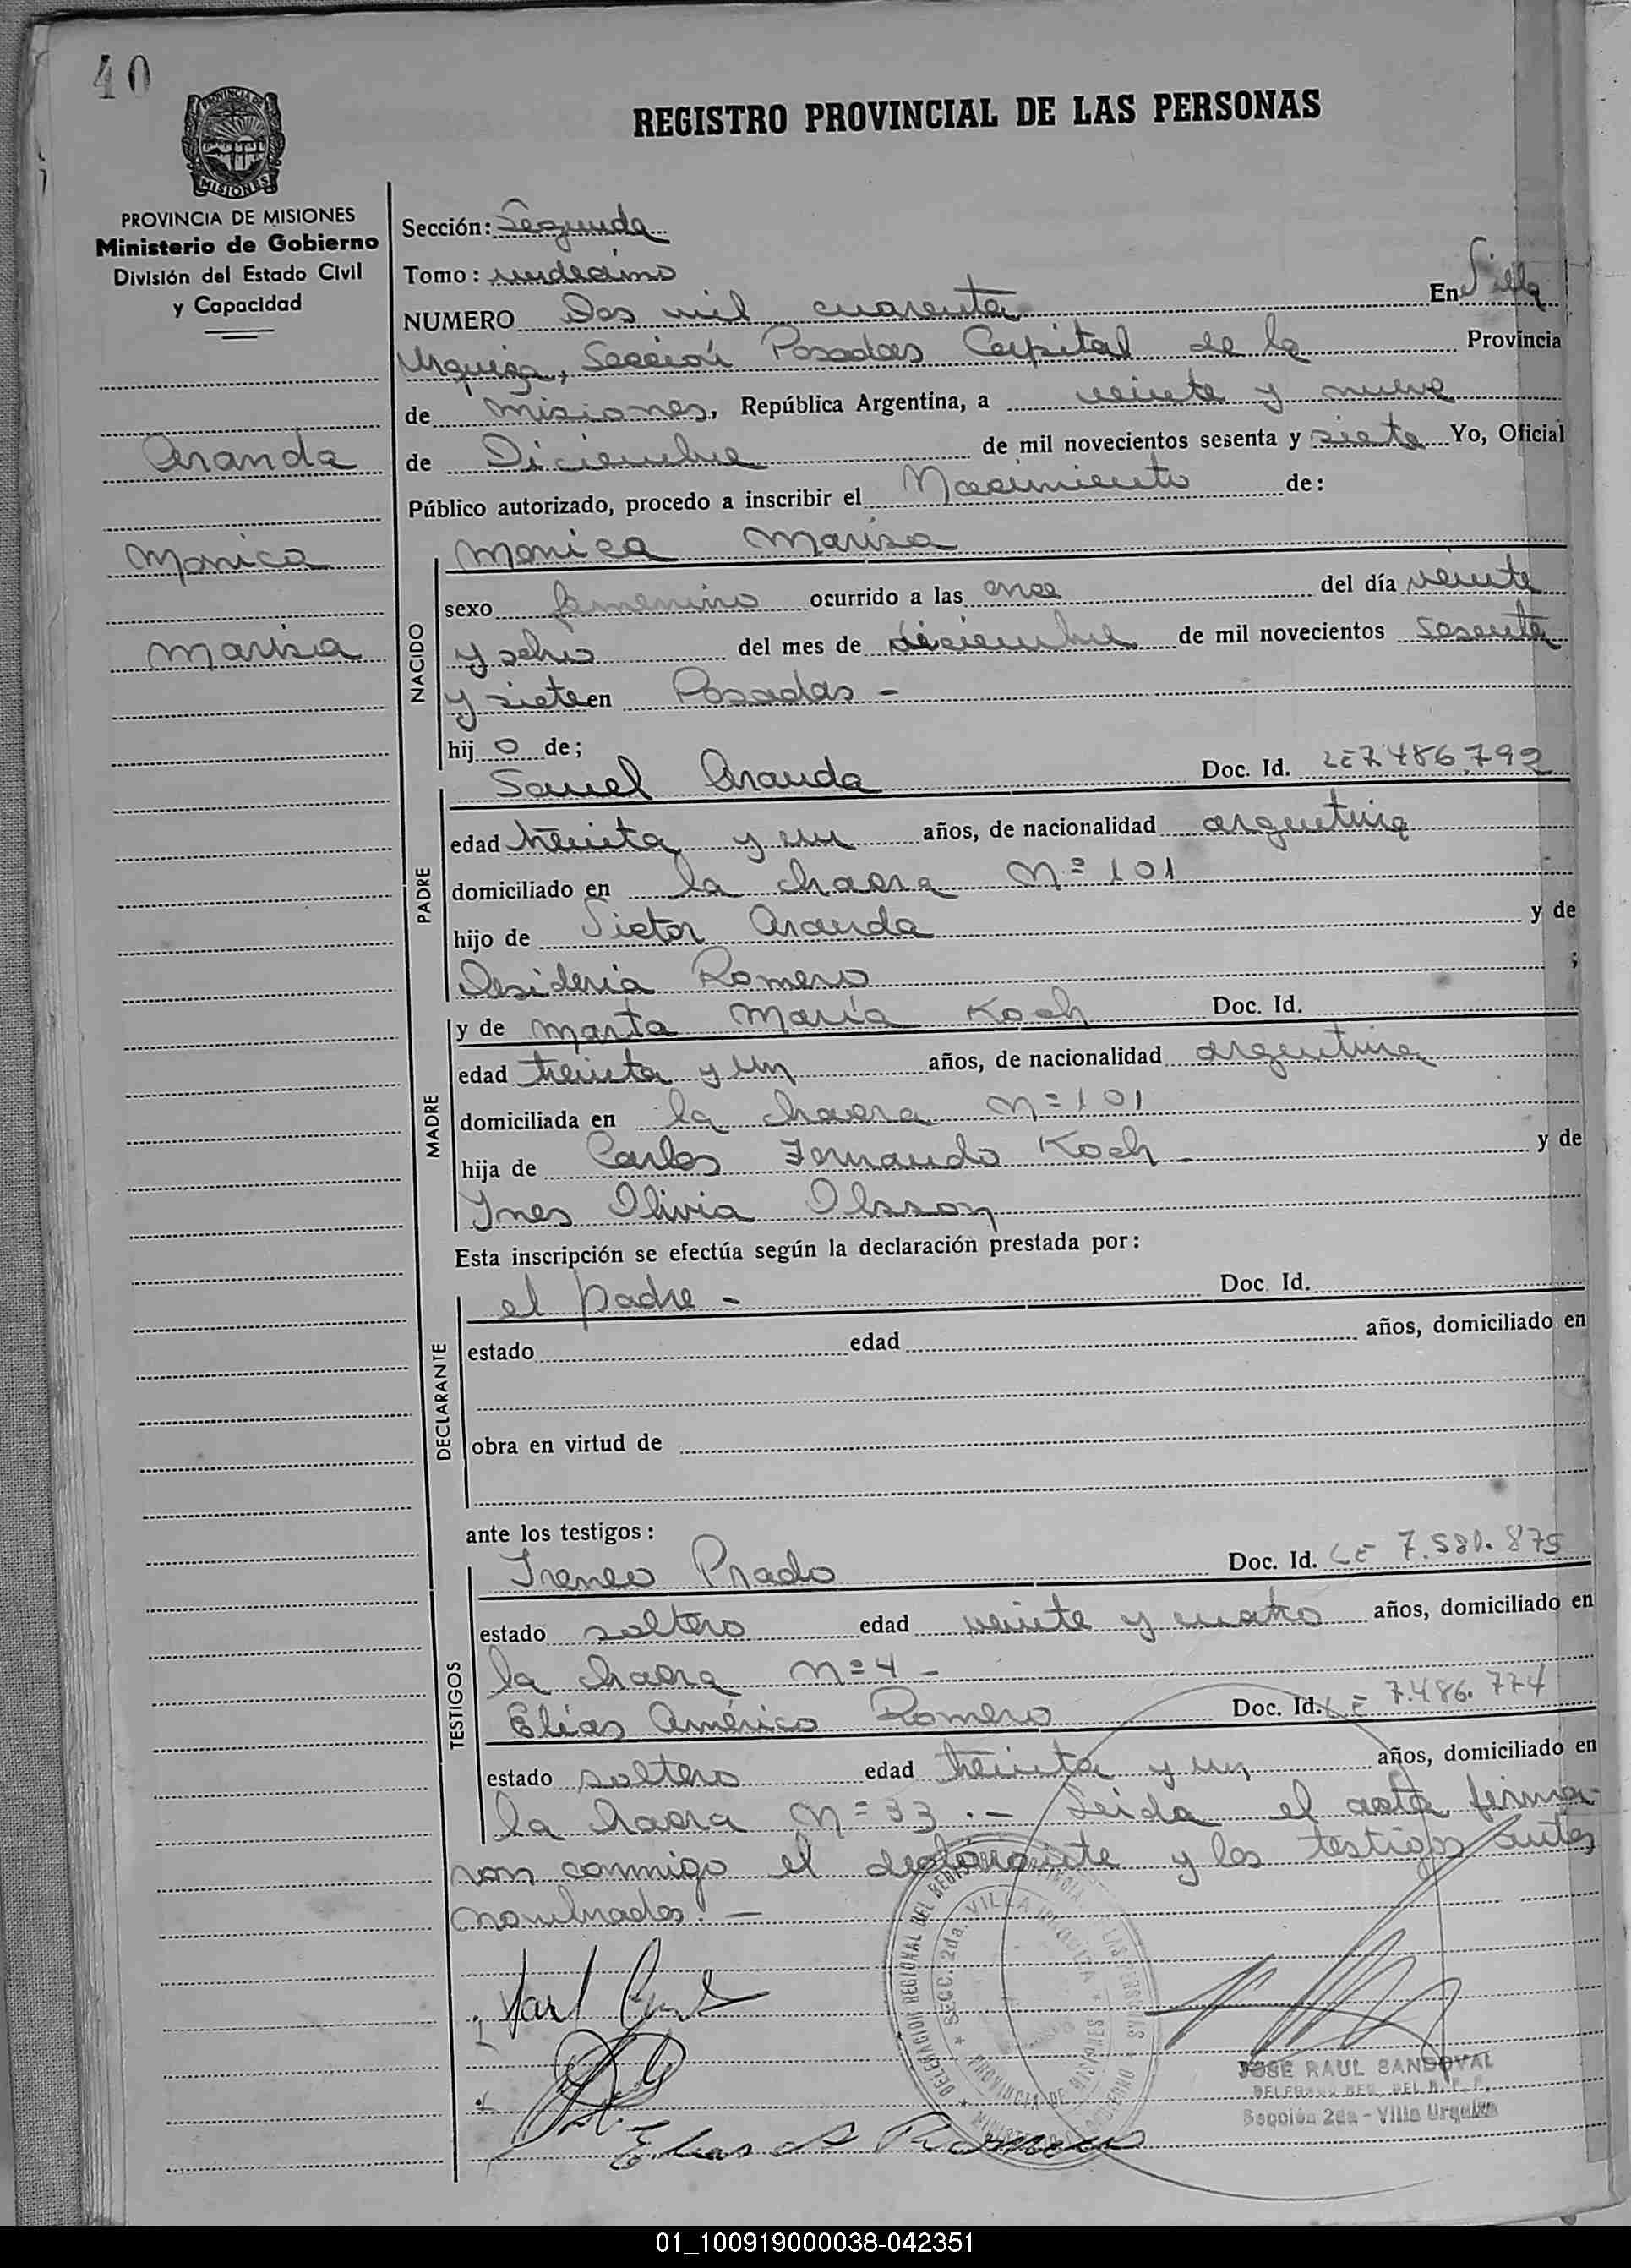 40
REGISTRO PROVINCIAL DE LAS PERSONAS
PROVINCIA DE MISIONES
Ministerio de Gobierno
División del Estado Civil
y Capacidad
Aranda
Monica
Marisa
Sección: Segunda
Tomo: undecimo
NUMERO Dos mil cuarenta En Villa
Urquiza, Sección Posadas Capital de la Provincia
de Misiones, República Argentina, a veinte y nueve
de Diciembre de mil novecientos sesenta y siete Yo, Oficial
Público autorizado, procedo a inscribir el Nacimiento de:
NACIDO
Monica Marisa
sexo femenino ocurrido a las once del día veinte
y ocho del mes de diciembre de mil novecientos sesenta
y siete en Posadas -
hij o de;
PADRE
Samuel Aranda Doc. Id. LE 7.486.792
edad treinta y un años, de nacionalidad argentina
domiciliado en la chacra Nº 101
hijo de Victor Aranda y de
Desideria Romero ;
MADRE
y de Marta María Koch Doc. Id.
edad treinta y un años, de nacionalidad argentina
domiciliada en la chacra Nº 101
hija de Carlos Fernando Koch - y de
Ynes Olivia Olsson
Esta inscripción se efectúa según la declaración prestada por:
DECLARANTE
el padre - Doc. Id.
estado edad años, domiciliado en
obra en virtud de
ante los testigos:
TESTIGOS
Ireneo Prado Doc. Id. LE 7.580.875
estado soltero edad veinte y cuatro años, domiciliado en
la chacra Nº 4 -
Elías Américo Romero Doc. Id. LE 7.486.774
estado soltero edad treinta y un años, domiciliado en
la chacra Nº 33.- Leida el acta firma-
ron conmigo el declarante y los testigos antes
nombrados. -
DELEGACION REGIONAL DEL REGISTRO PROVINCIAL DE LAS PERSONAS
SECC. 2da. VILLA URQUIZA
PROVINCIA DE MISIONES
Elias A Romero
JOSE RAUL SANDOVAL
DELEGADO REG. DEL R. P. P.
Sección 2da - Villa Urquiza
01_100919000038-042351